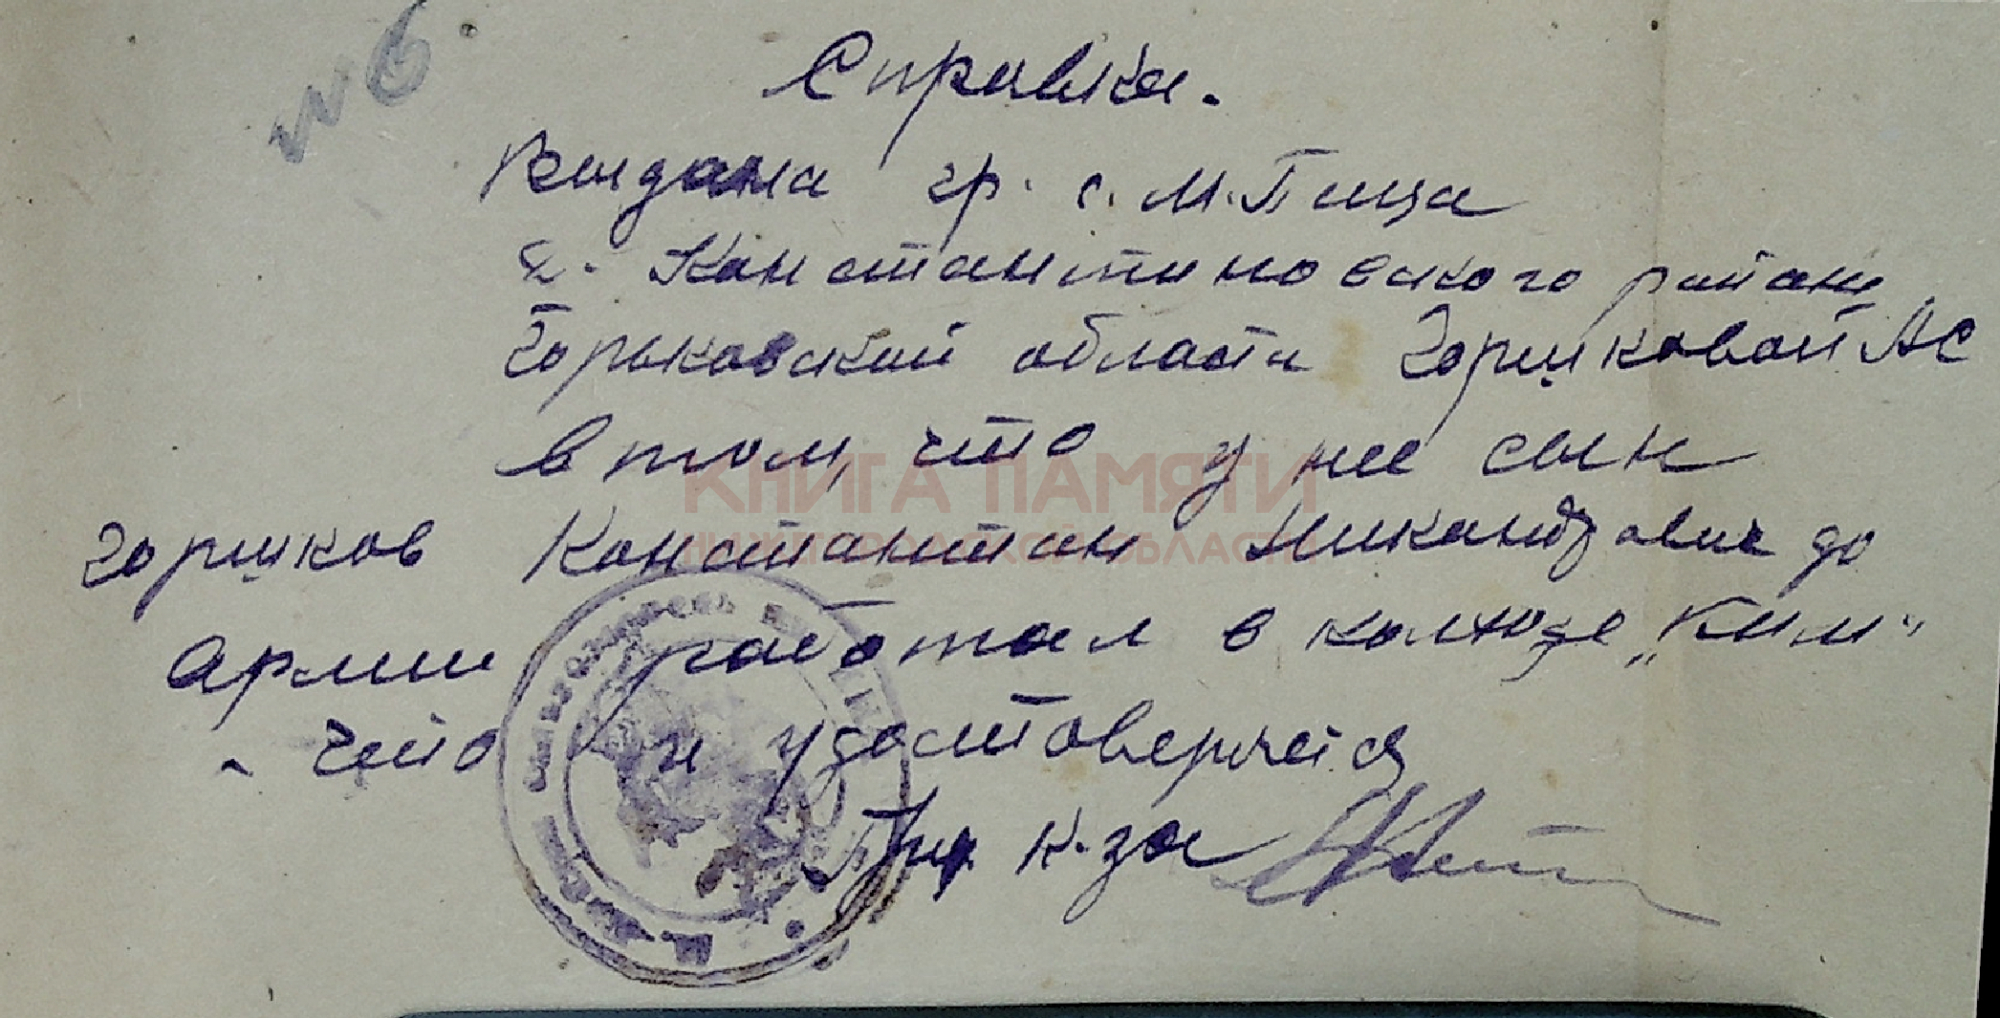 №6
Справка.
Выдана гр. с. М. Пица
Д. Константиновского района
Горьковской области Горшковой АС
в том, что у нее сын
Горшков Константин Никандрович до
Армии работал в колхозе „Ким"
что и удостоверяется
к-за
КНИГА ПАМЯТИ
НИЖЕГОРОДСКОЙ ОБЛАСТИ